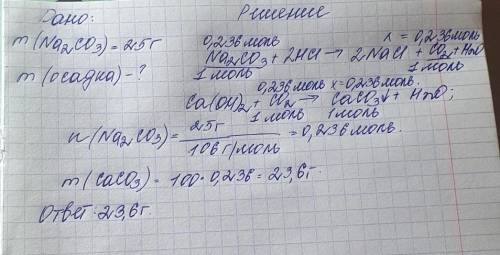 Дано: Решение
m(Na₂CO₃) = 25г 0,236моль x = 0,236моль
Na₂CO₃ + 2HCl → 2NaCl + CO₂ + H₂O
m(осадка) - ? 1моль 1моль
0,236моль x = 0,236моль.
Ca(OH)₂ + CO₂ → CaCO₃↓ + H₂O;
1моль 1моль
n(Na₂CO₃) = 25г / 106г/моль = 0,236моль.
m(CaCO₃) = 100·0,236 = 23,6г.
Ответ: 23,6г.